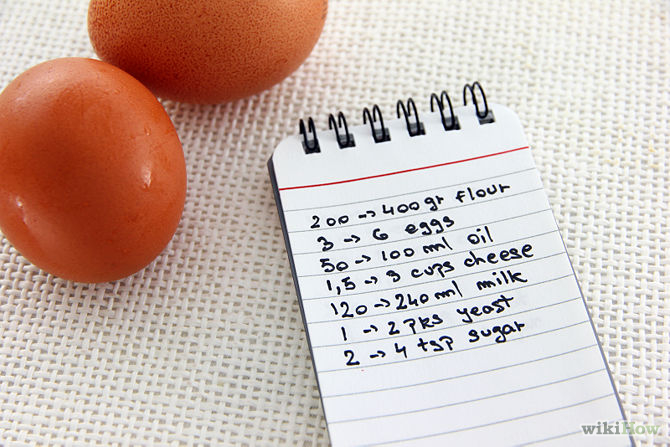 200 → 400 gr flour
3 → 6 eggs
50 → 100 ml oil
1,5 → 3 cups cheese
120 → 240 ml milk
1 → 2 pks yeast
2 → 4 tsp sugar
wikiHow